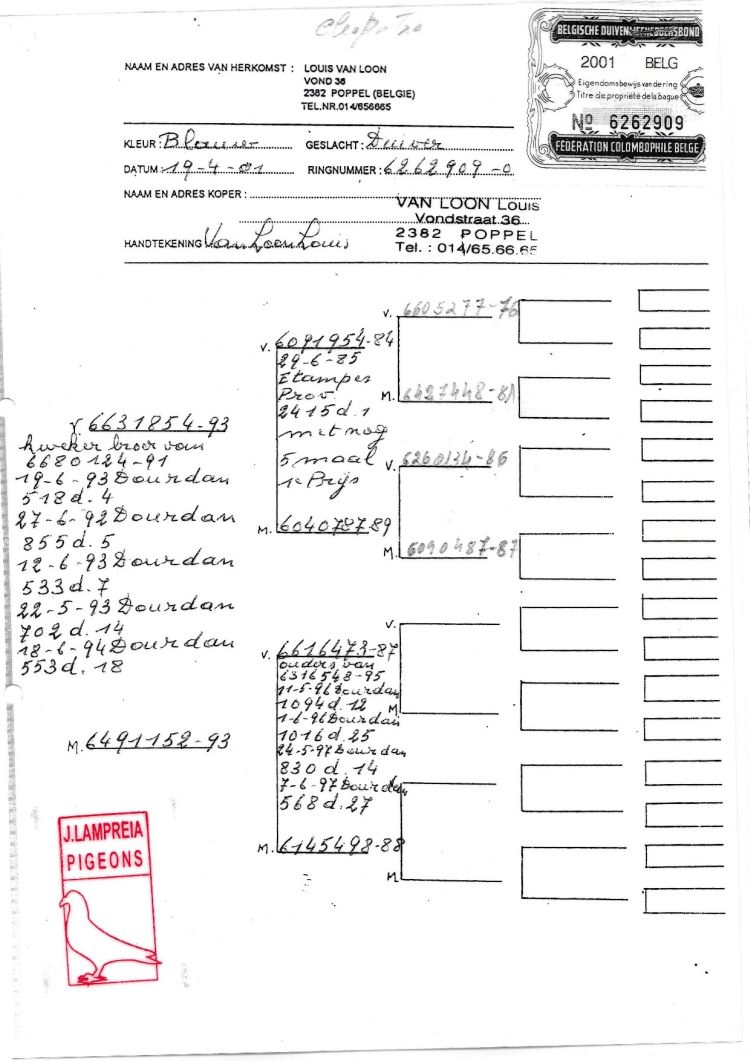 BELGISCHE DUIVENLIEFHEBBERSBOND
2001 BELG
Eigendomsbewijs van de ring
Titre de propriété de la bague
Nº 6262909
FÉDÉRATION COLOMBOPHILE BELGE
NAAM EN ADRES VAN HERKOMST : LOUIS VAN LOON
VOND 36
2382 POPPEL (BELGIE)
TEL.NR.014/656665
KLEUR: Blauwe GESLACHT: Duiver
DATUM: 19-4-01 RINGNUMMER: 6262909-0
NAAM EN ADRES KOPER :
VAN LOON Louis
Vondstraat 36
2382 POPPEL
Tel. : 014/65.66.65
HANDTEKENING Van Loon Louis
V. 6631854-93
kweker broer van
6680124-91
19-6-93 Dourdan
518 d. 4
27-6-92 Dourdan
855 d. 5
12-6-93 Dourdan
533 d. 7
22-5-93 Dourdan
702 d. 14
18-6-94 Dourdan
553 d. 18
M. 6491152-93
V. 6091954-84
29-6-85
Etampes
Prov.
2415 d. 1
met nog
5 maal
1e Prys
M. 6040787-89
V. 6616473-87
ouders van
6316548-95
11-5-96 Dourdan
1094 d. 12
1-6-96 Dourdan
1016 d. 25
24-5-97 Dourdan
830 d. 14
7-6-97 Dourdan
568 d. 27
M. 6145498-88
V. 6605277-76
M. 6427448-81
V. 6260134-86
M. 6090487-87
V.
M
V
M.
J.LAMPREIA
PIGEONS